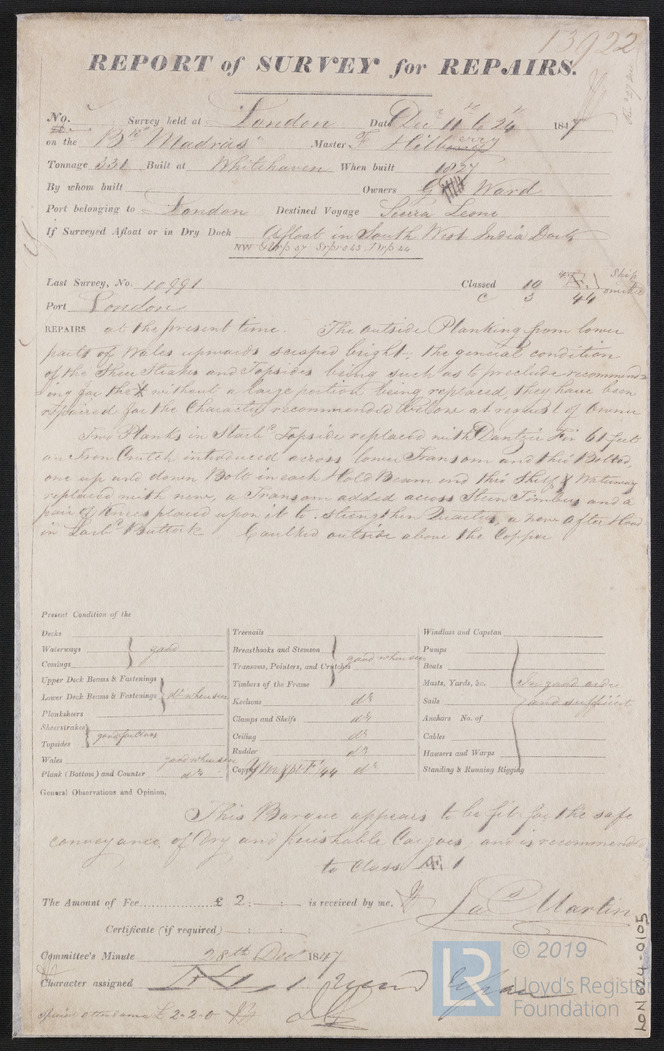 13922
REPORT of SURVEY for REPAIRS.
No. Survey held at London Date Decr 11th to 24th 1847
on the Bk Madras Master F Hilberry
Tonnage 331 Built at Whitehaven When built 1827
By whom built Owners G Ward
Port belonging to London Destined Voyage Siera Leone
If Surveyed Afloat or in Dry Dock Afloat in South West India Dock
Last Survey, No. 10991 Classed 10 Ship
C 3 44
Port London
REPAIRS at the present time. The outside Planking from lower
parts of Wales upwards scraped bright, the general condition
of the Sheer Strakes and Topsides being such as to preclude recommend
ing for the without a large portion being replaced, they have been
repaired for the Character recommended below at request of Owner
Two Planks in Starbd Topside replaced with Dantzic Fir 61 feet
an Iron Crutch introduced across lower Transom and this Bolted,
one up and down Bolt in each Hold Beam and this Shelf & Waterway
replaced with new, a Transom added across Stern Timbers and a
pair of Knees placed upon it to strengthen Quarters, a new after Hood
in Larbd Buttock Caulked outside above the Copper
Present Condition of the
Decks
Waterways good
Comings
Upper Deck Beams & Fastenings
Lower Deck Beams & Fastenings do when seen
Planksheers
Sheerstrakes
Topsides good for class
Wales good when seen
Plank (Bottom) and Counter do
Treenails
Breasthooks and Stemson
Transoms, Pointers, and Crutches good when seen
Timbers of the Frame
Keelsons do
Clamps and Shelfs do
Ceiling do
Rudder do
Copper 44 do
Windlass and Capstan
Pumps
Boats
Masts, Yards, &c. In good order
Sails and sufficient
Anchors No. of
Cables
Hawsers and Warps
Standing & Running Rigging
General Observations and Opinion,
This Barque appears to be fit for the safe
conveyance of Dry and perishable Cargoes, and is recommended
to Class Æ 1
The Amount of Fee £ 2 : : is received by me, Jas Martin
Certificate (if required) : :
Committee's Minute 28th Decr 1847
Character assigned
Special attendance £ 2-2-0
© 2019
LR
Lloyd's Register
Foundation
LON 624-0105